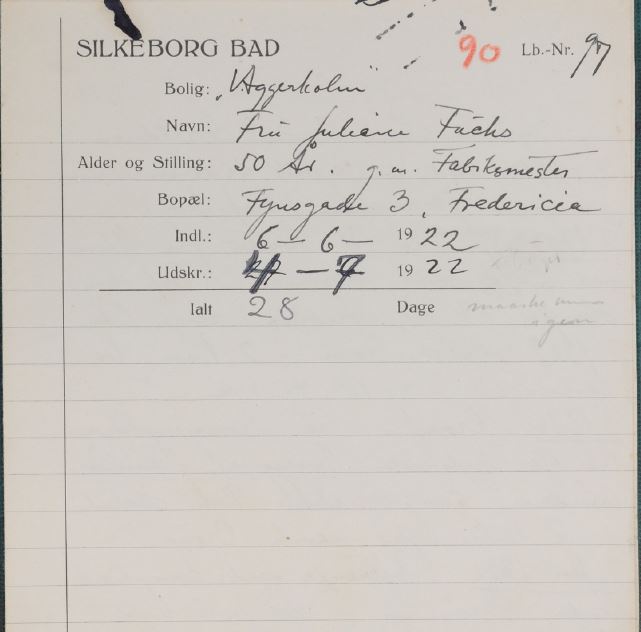 SILKEBORG BAD 90 Lb.-Nr. 97
Bolig: „Aggerholm"
Navn: Fru Juliane Fuchs
Alder og Stilling: 50 År. g. m. Fabriksmester
Bopæl: Fynsgade 3, Fredericia
Indl.: 6 – 6 – 1922
Udskr.: 4 – 7 1922
Ialt 28 Dage maaske
igen